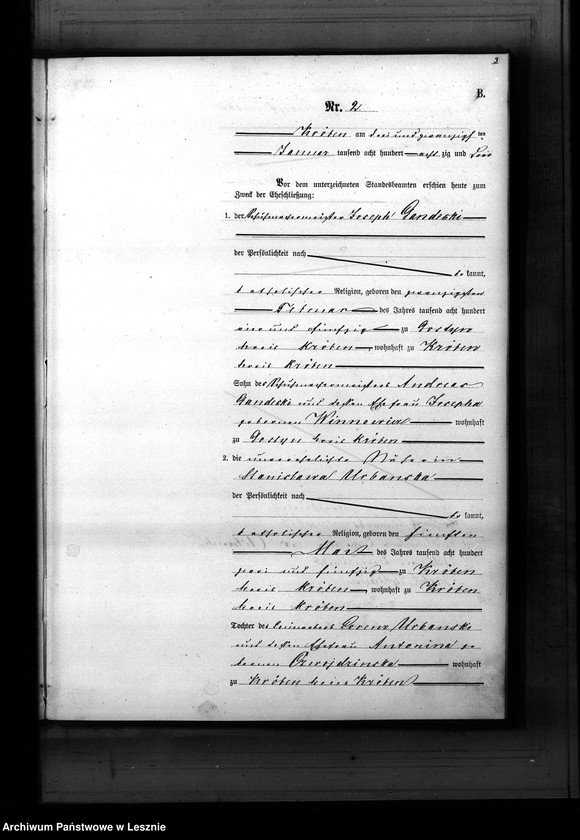 2
B.
Nr. 2
Kröben am drei und zwanzigsten
Januar tausend acht hundert acht zig und drei
Vor dem unterzeichneten Standesbeamten erschien heute zum
Zweck der Eheschließung:
1. der Schuhmachermeister Joseph Gandecki
der Persönlichkeit nach
be kannt,
katholischer Religion, geboren den zwanzigsten
Februar des Jahres tausend acht hundert
vier und fünfzig zu Gostyn
Kreis Kröben, wohnhaft zu Kröben
Kreis Kröben
Sohn des Schuhmachermeisters Andreas
Gandecki und dessen Ehefrau Josepha
geborenen wohnhaft
zu Gostyn Kreis Kröben
2. die unverehelichte Näherin
Stanislawa Urbanska
der Persönlichkeit nach
be kannt,
katholischer Religion, geboren den fünften
März des Jahres tausend acht hundert
zwei und fünfzig zu Kröben
Kreis Kröben, wohnhaft zu Kröben
Kreis Kröben
Tochter des Lorenz Urbanski
und dessen Ehefrau Antonina ge
borenen wohnhaft
zu Kröben Kreis Kröben
Archiwum Państwowe w Lesznie